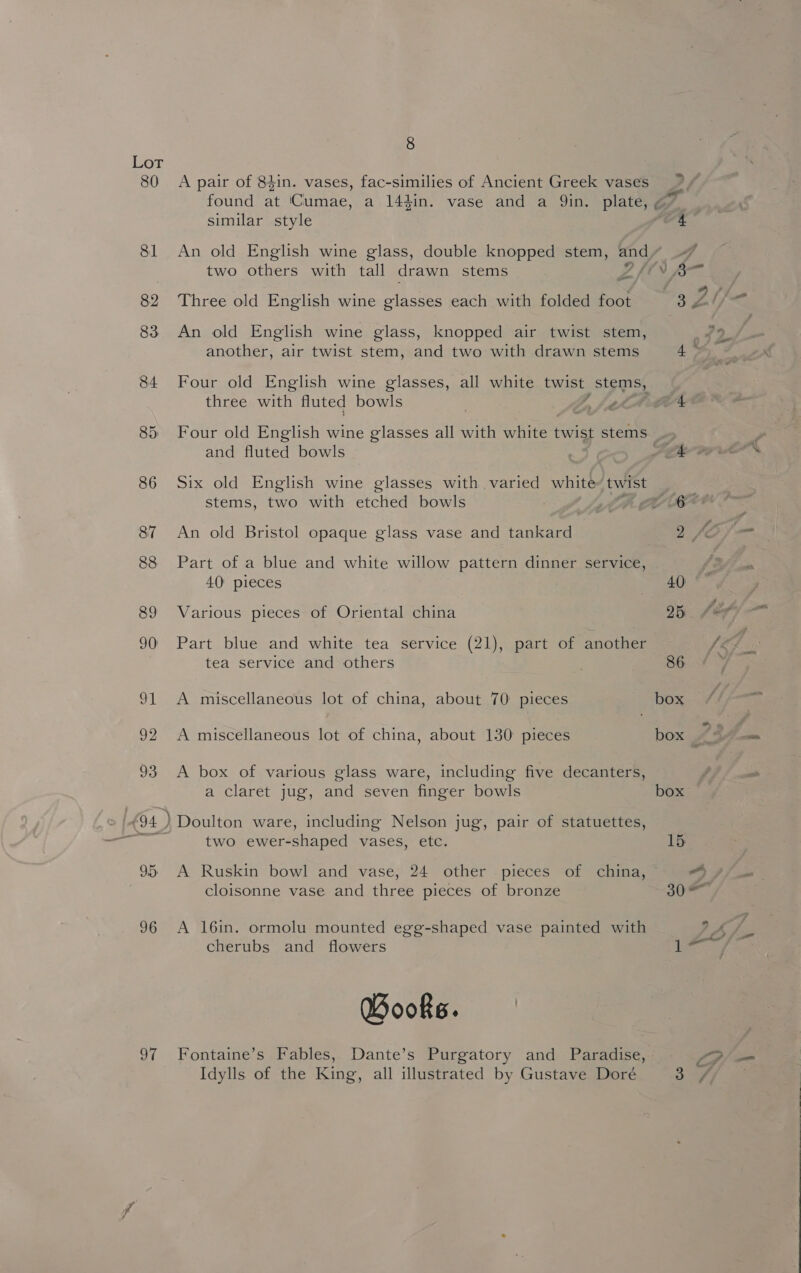 8
Lot
80 A pair of 8½in. vases, fac-similies of Ancient Greek vases
found at Cumae, a 14½in. vase and a 9in. plate,
similar style 4
81 An old English wine glass, double knopped stem, and
two others with tall drawn stems 3
82 Three old English wine glasses each with folded foot 3
83 An old English wine glass, knopped air twist stem,
another, air twist stem, and two with drawn stems 4
84 Four old English wine glasses, all white twist stems,
three with fluted bowls 4
85 Four old English wine glasses all with white twist stems
and fluted bowls 4
86 Six old English wine glasses with varied white twist
stems, two with etched bowls 6
87 An old Bristol opaque glass vase and tankard 2
88 Part of a blue and white willow pattern dinner service,
40 pieces 40
89 Various pieces of Oriental china 25
90 Part blue and white tea service (21), part of another
tea service and others 86
91 A miscellaneous lot of china, about 70 pieces box
92 A miscellaneous lot of china, about 130 pieces box
93 A box of various glass ware, including five decanters,
a claret jug, and seven finger bowls box
94 Doulton ware, including Nelson jug, pair of statuettes,
two ewer-shaped vases, etc. 15
95 A Ruskin bowl and vase, 24 other pieces of china,
cloisonne vase and three pieces of bronze 30
96 A 16in. ormolu mounted egg-shaped vase painted with
cherubs and flowers 1
Books.
97 Fontaine's Fables, Dante's Purgatory and Paradise,
Idylls of the King, all illustrated by Gustave Doré 3